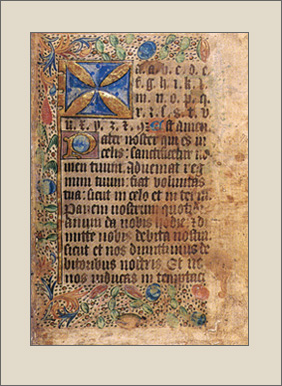 a. a. b. c. d. e.
f. g. h. i. k. l.
m. n. o. p. q.
r. z. s. s. t. v
u. x. y. z. est amen
Pater noster qui es in
celis: sanctificetur no
men tuum. Adveniat reg
num tuum fiat voluntas
tua: sicut in celo et in terra
Panem nostrum quoti
anum da nobis hodie et di
mitte nobis debita nostra
sicut et nos dimittimus de
bitoribus nostris. Et ne
nos inducas in temptaci